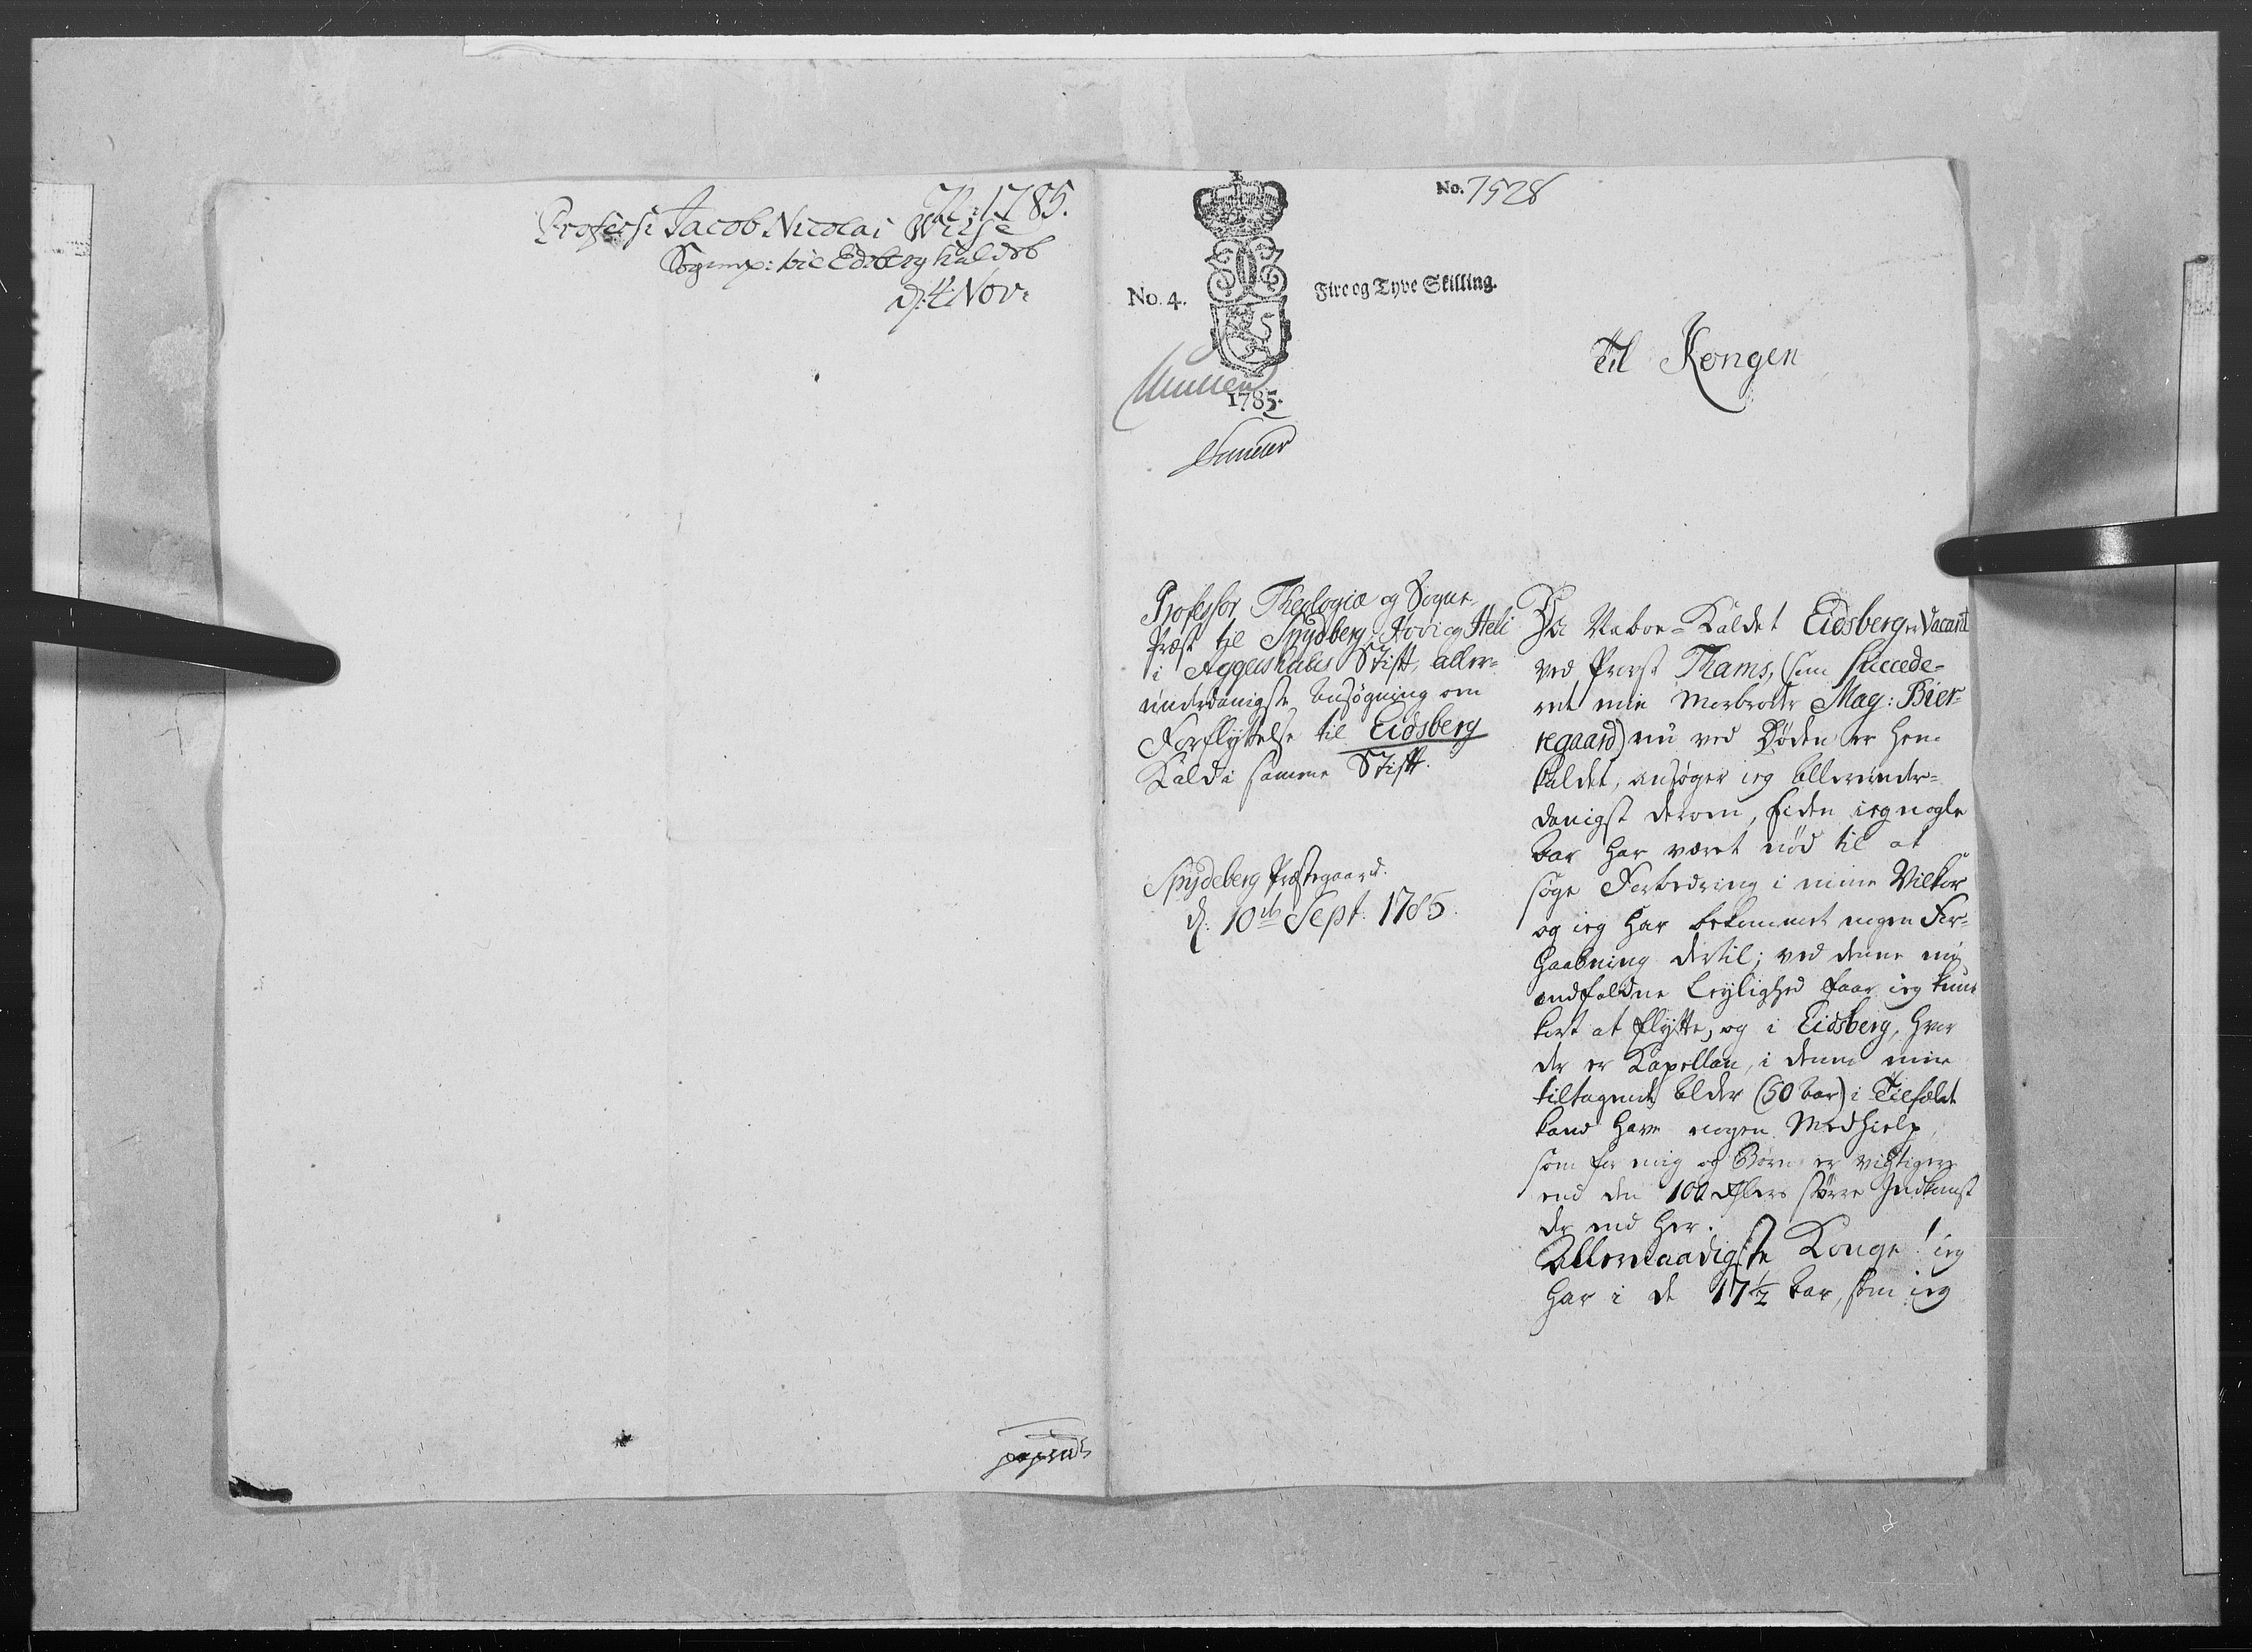 N: 1785.
Profess: Jacob Nicolai Wilse
Sognepr: til Edsberg Kald
d. 4 Nov:
No. 7528
No. 4.
Fire og Tyve Skilling.
1785.
Til Kongen
Professor Theologiæ og Sogne-
Præst til Spydberg, Hovi og Heli
i Aggershuus Stift, aller-
underdanigste Ansøgning om
Forflyttelse til Eidsberg
Kald i samme Stift.
Spydeberg Præstegaard.
d. 10de Sept. 1785.
Da Naboe-Kaldet Eidsberg er Vacant
ved Provst Thams, (som succede-
rete min Morbroder Mag: Bier-
regaard) nu ved Døden er hen-
kaldet, ansøger ieg allerunder-
danigst derom, siden ieg nogle
Aar har været nød til at
søge Forbedring i mine Vilkor
og ieg har bekommet nogen For-
haabning dertil; ved denne nu
indfaldne Leylighed faar ieg kuns
kort at flytte, og i Eidsberg, hvor
der er Kapellan, i denne min
tiltagende Alder (50 Aar) i Tilfælde
kand have nogen Medhielp,
som for mig og Børn er vigtigere
end den 100 Rdlers større Indkomst
der end her.
Allernaadigste Konge! ieg
har i de 17 1/2 Aar, som ieg